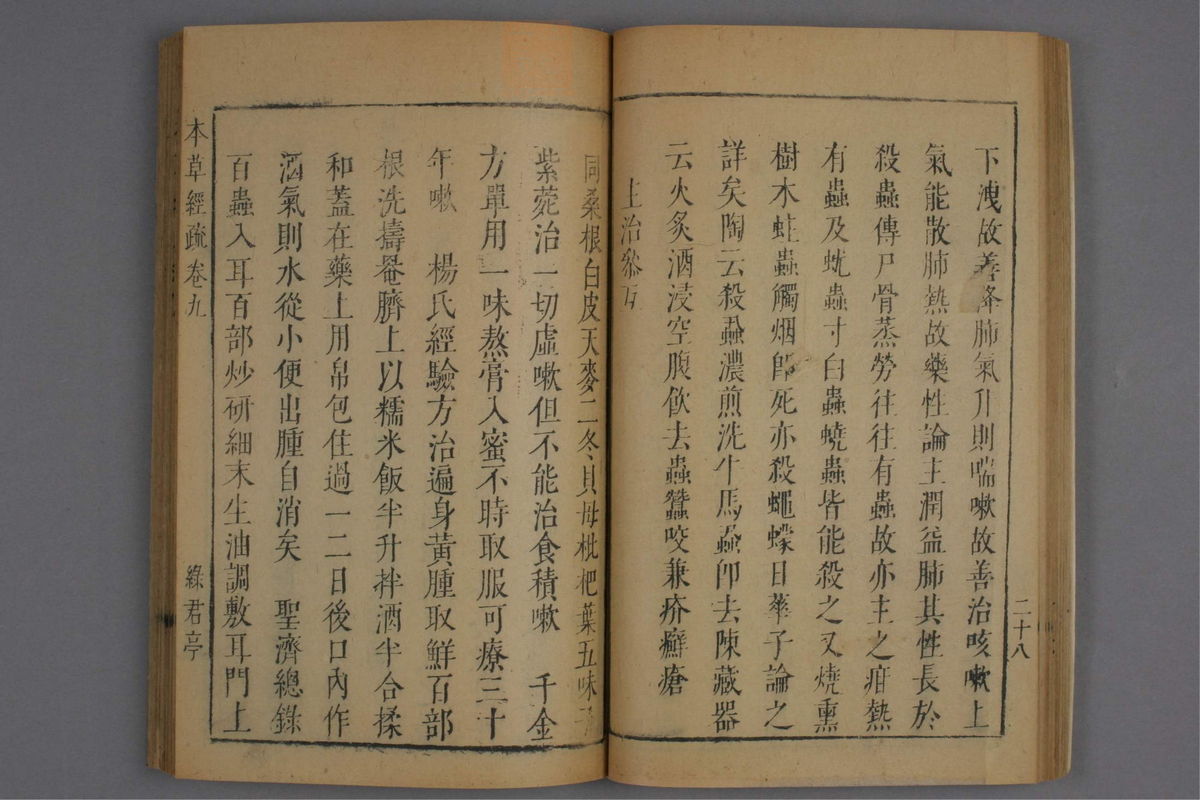 二十八
下洩故善降肺氣升則喘嗽故善治咳嗽上
氣能散肺熱故藥性論主潤益肺其性長於
殺蟲傳尸骨蒸勞往往有蟲故亦主之疳熱
有蟲及蚘蟲寸白蟲蟯蟲皆能殺之又燒熏
樹木蛀蟲觸烟卽死亦殺蠅蠓日華子論之
詳矣陶云殺蝨濃煎洗牛馬蝨卽去陳藏器
云火炙酒浸空腹飲去蟲蠶咬兼疥癬瘡
主治參互
同桑根白皮天麥二冬貝母枇杷葉五味子
紫菀治一切虛嗽但不能治食積嗽　千金
方單用一味熬膏入蜜不時取服可療三十
年嗽　楊氏經驗方治遍身黃腫取鮮百部
根洗擣罨臍上以糯米飯半升拌酒半合揉
和蓋在藥上用帛包住過一二日後口內作
酒氣則水從小便出腫自消矣　聖濟總錄
百蟲入耳百部炒研細末生油調敷耳門上
本草經疏 卷九 綠君亭